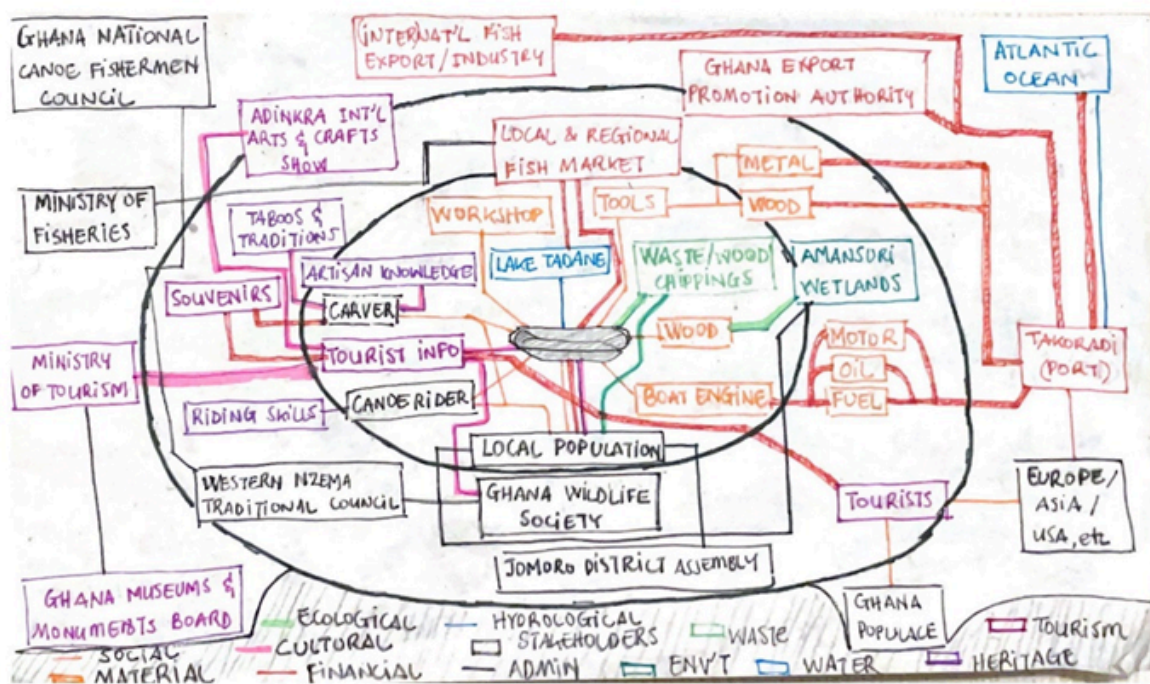 GHANA NATIONAL
CANOE FISHERMEN
COUNCIL
(INTERNAT'L FISH
EXPORT/INDUSTRY
GHANA EXPORT
PROMOTION AUTHORITY
ATLANTIC
OCEAN
ADINKRA INT'L
ARTS & CRAFTS
SHOW
LOCAL & REGIONAL
FISH MARKET
METAL
MINISTRY OF
FISHERIES
TABOOS &
TRADITIONS
WORKSHOP
TOOLS
WOOD
ARTISAN KNOWLEDGE
LAKE TADANE
WASTE/WOOD
CHIPPINGS
AMANSURI
WETLANDS
SOUVENIRS
CARVER
WOOD
MOTOR
TAKORADI
(PORT)
MINISTRY
OF TOURISM
TOURIST INFO
OIL
RIDING SKILLS
CANOE RIDER
BOAT ENGINE
FUEL
LOCAL POPULATION
WESTERN NZEMA
TRADITIONAL COUNCIL
GHANA WILDLIFE
SOCIETY
TOURISTS
EUROPE/
ASIA/
USA, etc
JOMORO DISTRICT ASSEMBLY
GHANA MUSEUMS &
MONUMENTS BOARD
GHANA
POPULACE
ECOLOGICAL
HYDROLOGICAL
CULTURAL
STAKEHOLDERS
WASTE
TOURISM
SOCIAL
MATERIAL
FINANCIAL
ADMIN
ENV'T
WATER
HERITAGE